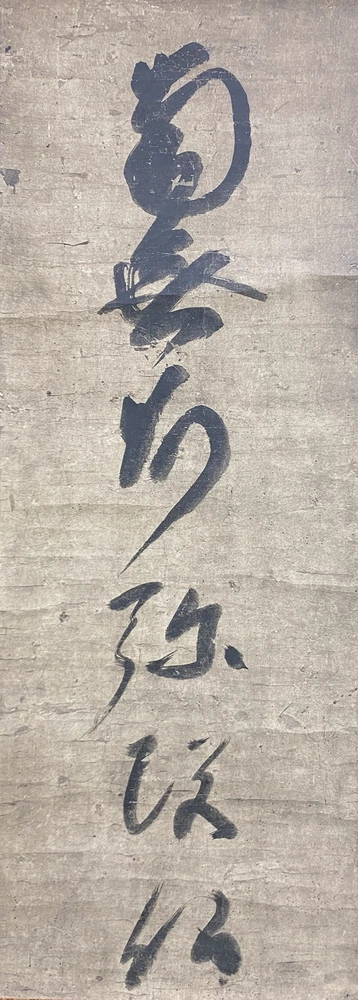 南無阿弥陀仏